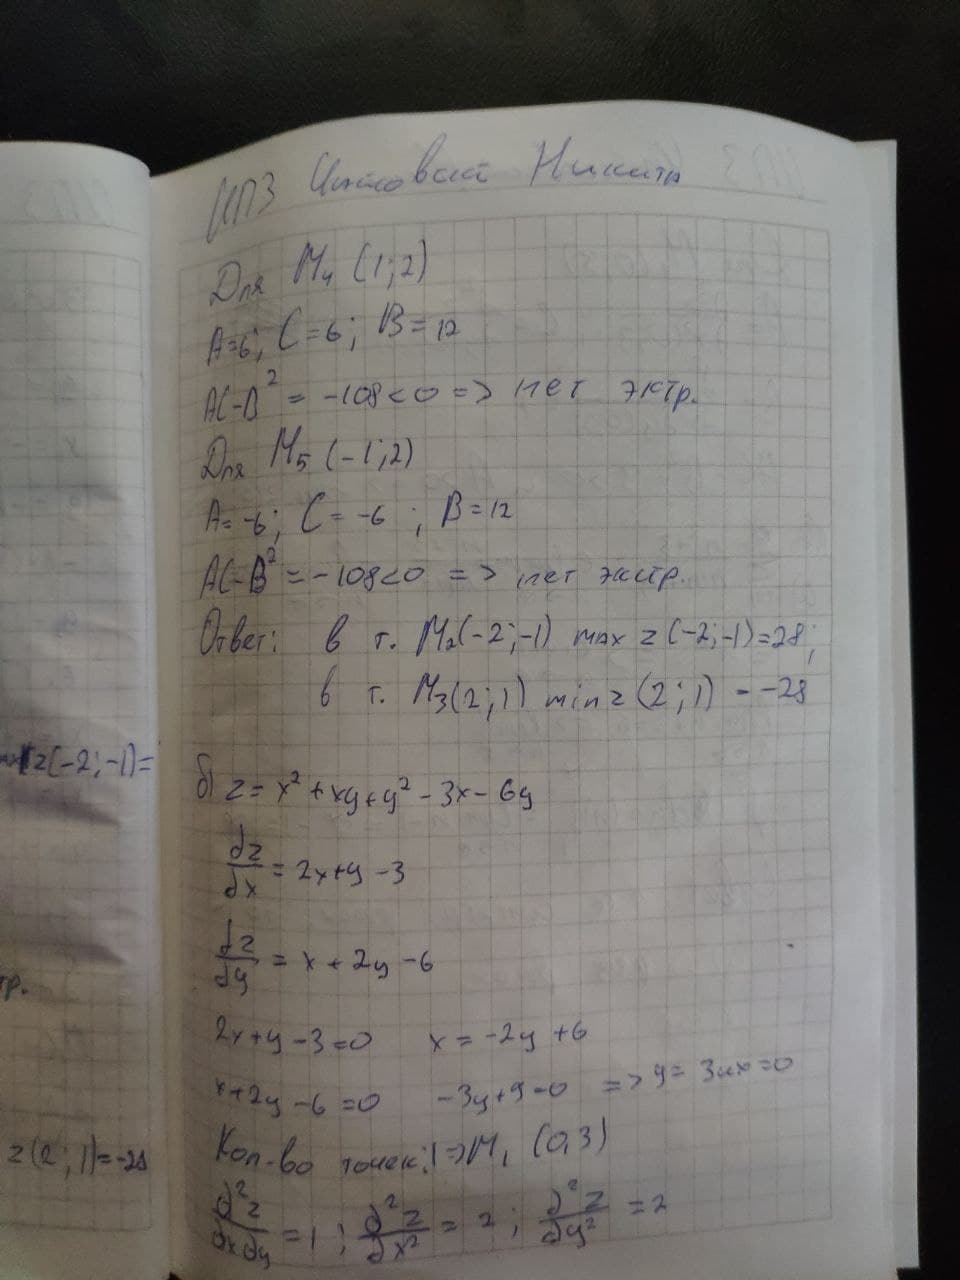 ИПЗ Никита
Для M₄ (1;2)
A=6; C=6; B=12
AC-B² = -108<0 => нет эктр.
Для M₅ (-1;2)
A=-6; C=-6; B=12
AC-B² = -108<0 => нет экстр.
Ответ: в т. M₂(-2;-1) max z(-2;-1)=28;
в т. M₃(2;1) min z(2;1) = -28
б) z = x² + xy + y² - 3x - 6y
∂z/∂x = 2x+y-3
∂z/∂y = x+2y-6
2x+y-3=0 x=-2y+6
x+2y-6=0 -3y+9=0 => y=3 и x=0
Кол-во точек:1=>M₁ (0,3)
∂²z/∂x∂y = 1; ∂²z/∂x² = 2; ∂²z/∂y² = 2
z(-2;-1)=
тр.
z(2;1)=-28